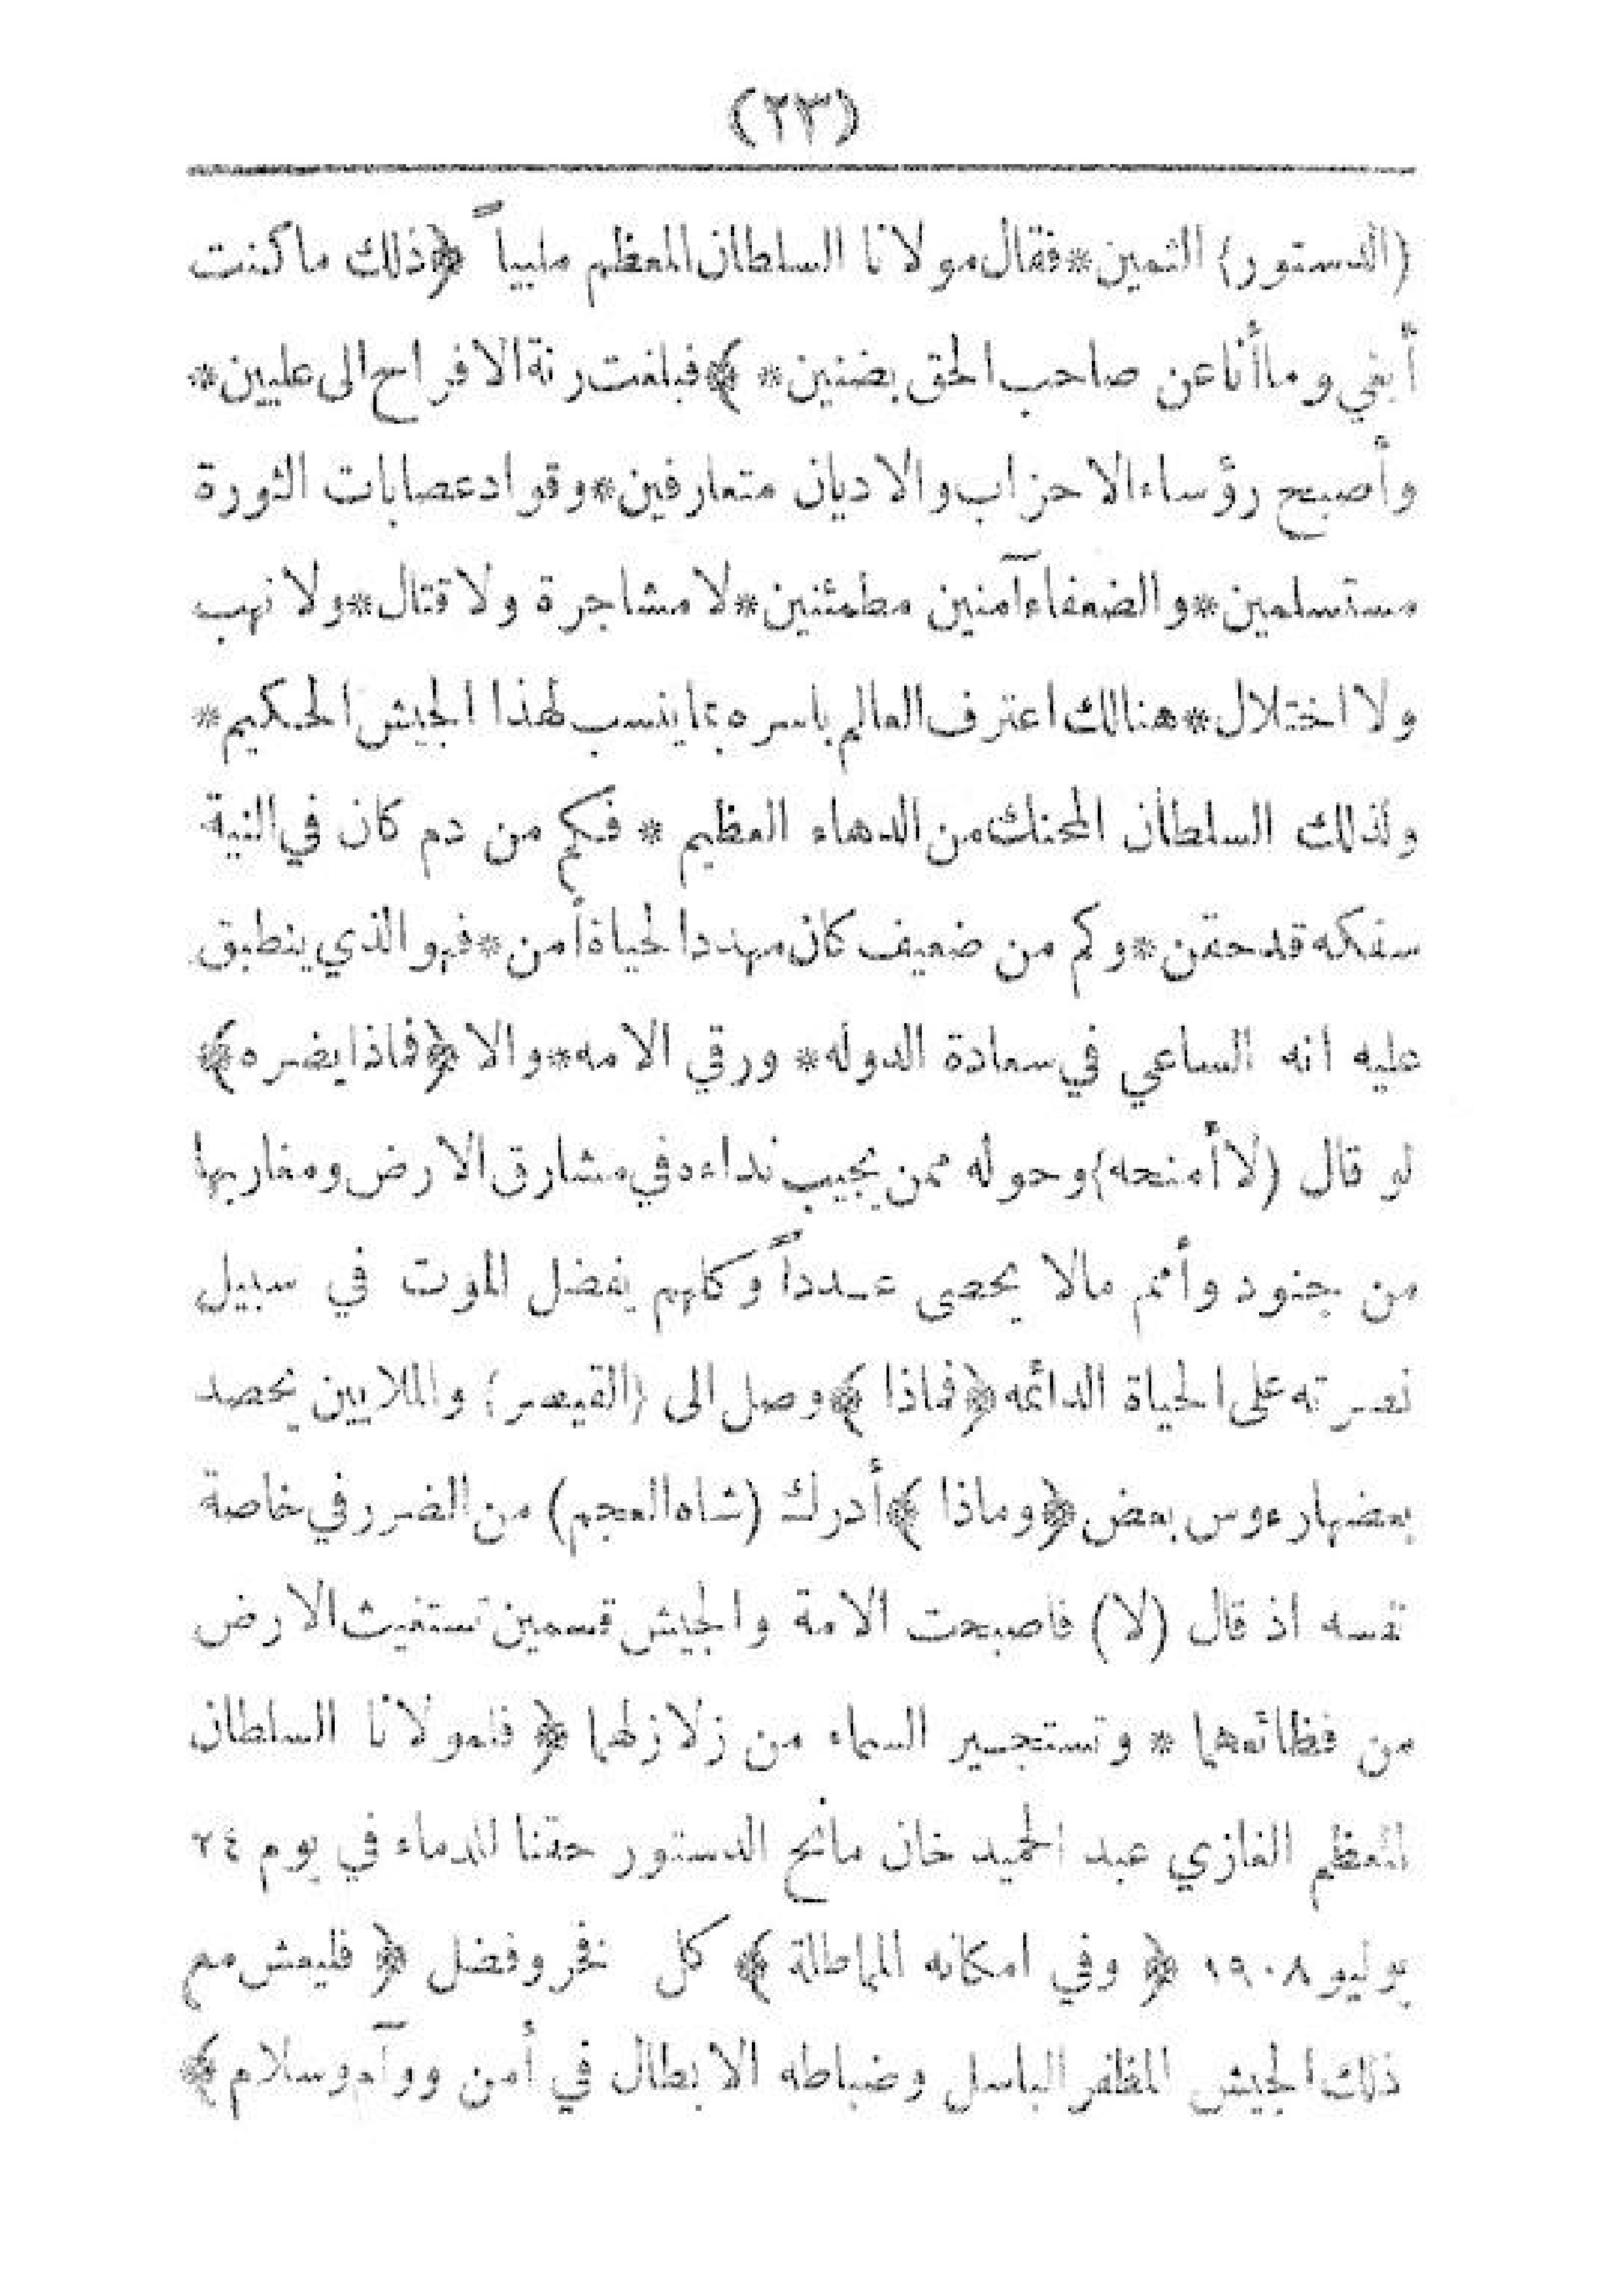 (٢٣)
(الدستور) الثمين * فقال مولانا السلطان المعظم ملبياً ﴿ذلك ما كنت
أبغي وما أنا عن صاحب الحق بضنين * ﴾ فبلغت رنة الافراح الى عليين *
وأصبح رؤساء الاحزاب والاديان متعارفين * وقواد عصابات الثورة
مستسلمين * والضعفاء آمنين مطمئنين * لا مشاجرة ولا قتال * ولا نهب
ولا اختلال * هنالك اعترف العالم باسره بما ينسب لهذا الجيش الحكيم *
ولذلك السلطان المحنك من الدهاء العظيم * فكم من دم كان في النية
سفكه قد حقن * وكم من ضعيف كان مهددا لحياة أمن * فهو الذي ينطبق
عليه انه الساعي في سعادة الدوله * ورقي الامه * والا ﴿فماذا يضره﴾
لو قال (لا أمنحه) وحوله ممن يجيب نداءه في مشارق الارض ومغاربها
من جنود وأمم مالا يحصى عدداً وكلهم يفضل الموت في سبيل
نصرته على الحياة الدائمه ﴿فماذا ﴾ وصل الى (القيصر) والملايين يحصد
بعضها رءوس بعض ﴿وماذا ﴾ أدرك (شاه العجم) من الضرر في خاصة
نفسه اذ قال (لا) فاصبحت الامة والجيش قسمين تستغيث الارض
من فظائعهما * وتستجير السماء من زلازلهما ﴿ فلمولانا السلطان
المعظم الغازي عبد الحميد خان مانح الدستور حقنا للدماء في يوم ٢٤
يوليو ١٩٠٨ ﴿ وفي امكانه المماطلة ﴾ كل فخر وفضل ﴿ فليعش مع
ذلك الجيش المظفر الباسل وضباطه الابطال في أمن ووآم وسلام ﴾